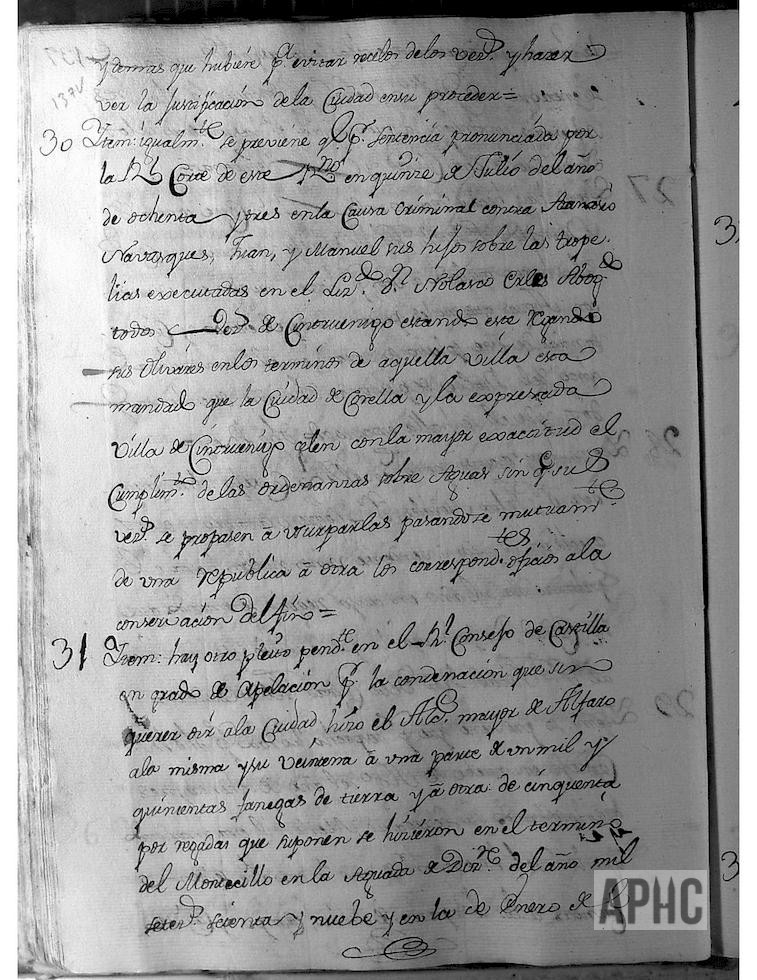 137V
y demas que hubiere pª. evitar recelos de los vezˢ. y hazer
ver la Justificación de la Ciudad en su proceder =
30 Item: igualmᵗᵉ se previene qᵉ pʳ. sentencia pronunciada por
la Rˡ Corte de este Rⁿᵒ en quinze de Julio del año
de ochenta y tres en la Causa Criminal contra Atanasio
Navasques, Juan, y Manuel sus hijos sobre las trope-
lias executadas en el Lizᵈᵒ. Dⁿ Nolasco Abogᵈᵒ
todos vezˢ de Cintruenigo estando este regando
sus Olivares en los terminos de aquella Villa esta
mandado que la Ciudad de Corella y la expresada
Villa de Cintruenigo zelen con la mayor exactitud el
Cumplimᵗᵒ. de las ordenanzas sobre Aguas sin qᵉ. sus
vezˢ. se propasen â usurparlas pasandose mutuamᵗᵉ
de una republica â otra los correspondᵗᵉˢ. oficios a la
conservación del fin =
31 Item: hay otro pleito pendᵗᵉ. en el Rˡ. Consejo de Castilla
en grado de Apelación pʳ. la condenación que sin
querer oir a la Ciudad hizo el Alcᵈᵉ. mayor de Alfaro
a la misma y su Veintena â una parte de un mil y
quinientas fanegas de tierra y â otra de cinquenta
por regadas que suponen se hizieron en el termino
del Montecillo en la Aguada de Dizʳᵉ. del año mil
seteˢ. setenta y nuebe y en la de Enero de
APHC